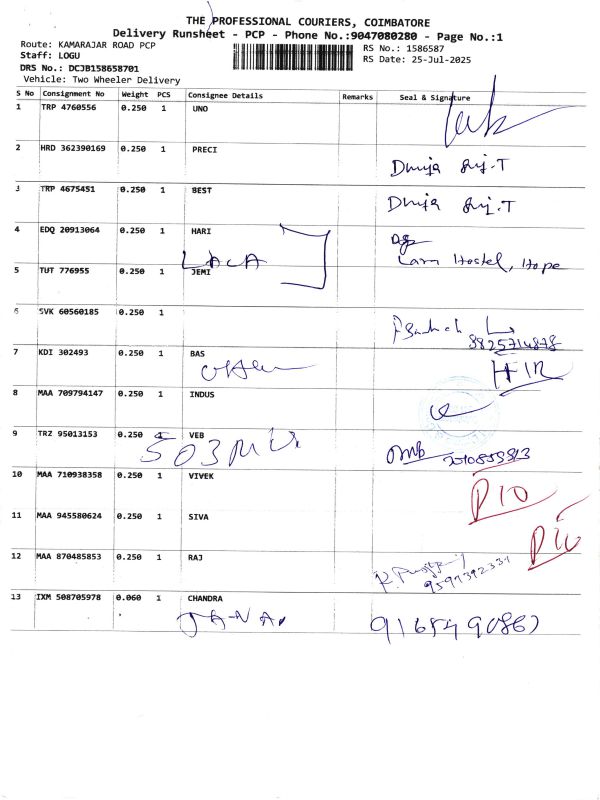 THE PROFESSIONAL COURIERS, COIMBATORE
Delivery Runsheet - PCP - Phone No.:9047080280 - Page No.:1
Route: KAMARAJAR ROAD PCP
RS No.: 1586587
Staff: LOGU
RS Date: 25-Jul-2025
DRS No.: DCJB158658701
Vehicle: Two Wheeler Delivery
S No Consignment No Weight PCS Consignee Details Remarks Seal & Signature
1 TRP 4760556 0.250 1 UNO
2 HRD 362390169 0.250 1 PRECI
3 TRP 4675451 0.250 1 BEST
4 EDQ 20913064 0.250 1 HARI
Hostel, Hope
5 TUT 776955 0.250 1 JEMI
6 SVK 60560185 0.250 1
8825714878
7 KDI 302493 0.250 1 BAS
8 MAA 709794147 0.250 1 INDUS
9 TRZ 95013153 0.250 VEB
10 MAA 710938358 0.250 1 VIVEK
11 MAA 945580624 0.250 1 SIVA
12 MAA 870485853 0.250 1 RAJ
9597392331
13 IXM 508705978 0.060 1 CHANDRA